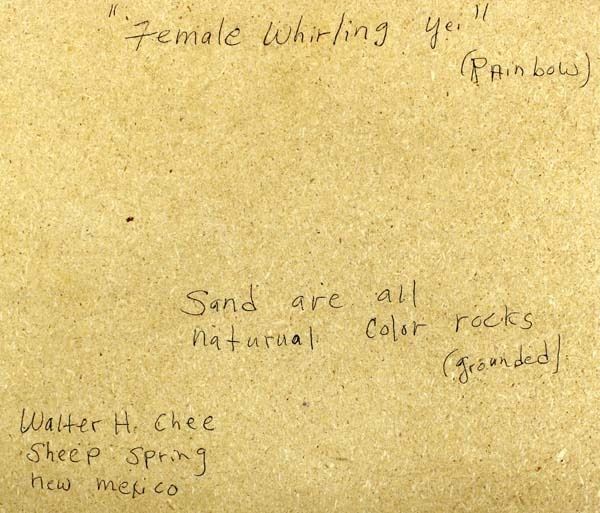 "Female Whirling Yei"
(Rainbow)
Sand are all
naturual color rocks
(grounded)
Walter H. Chee
Sheep Spring
new mexico